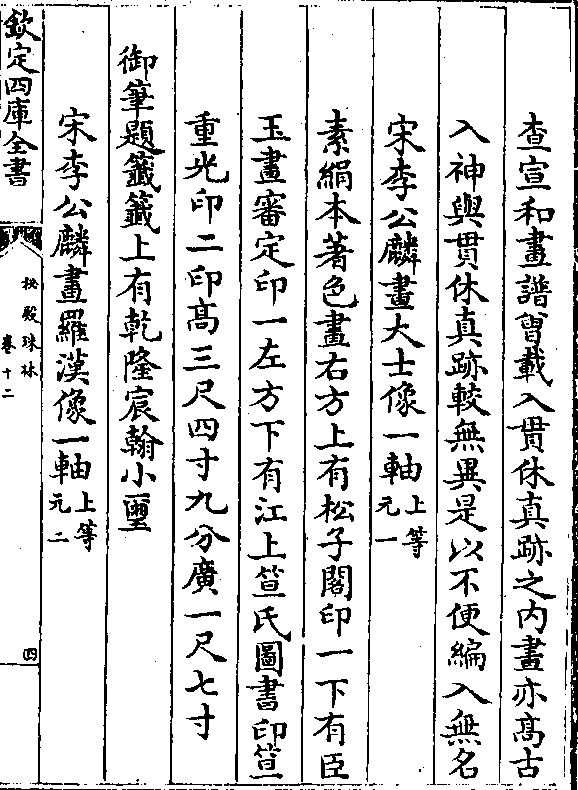 查宣和畫譜曾載入貫休真跡之内畫亦髙古
入神與貫休真跡較無異是以不便編入無名
宋李公麟畫大士像一軸上等元一
素絹本著色畫右方上有松子閣印一下有臣
玉畫審定印一左方下有江上笪氏圖書印笪
重光印二印髙三尺四寸九分廣一尺七寸
御筆題籤籤上有乾隆宸翰小璽
宋李公麟畫羅漢像一軸上等元二
欽定四庫全書
秘殿珠林
卷十二
四